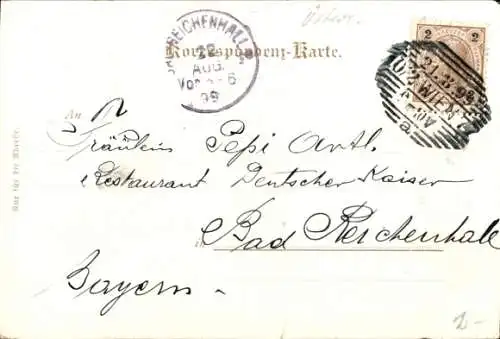 Österr.
BAD REICHENHALL
22
AUG.
Vor
99
Korrespondenz-Karte.
2 2
WIEN
An
Fräulein Pepi Artl.
Restaurant Deutscher Kaiser
in Bad Reichenhall
Bayern
Nur für die Adresse.
2-